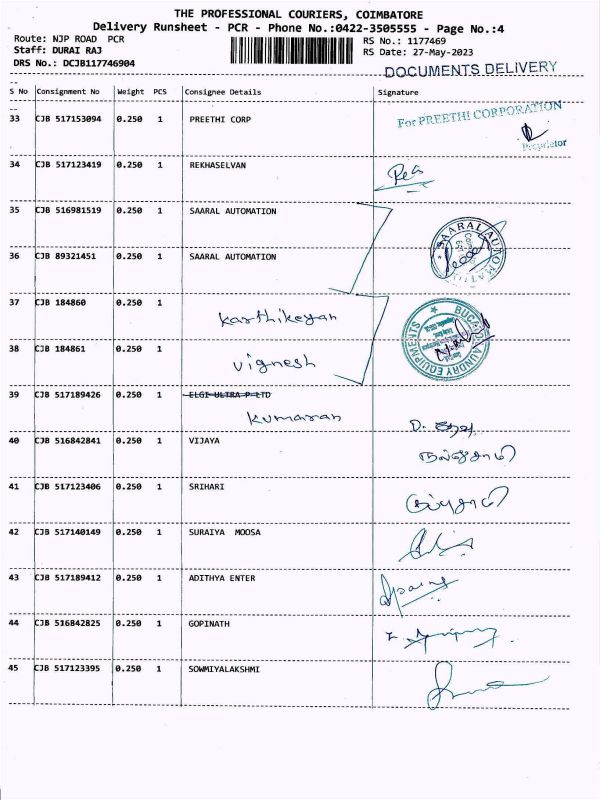 THE PROFESSIONAL COURIERS, COIMBATORE
Delivery Runsheet - PCR - Phone No.:0422-3505555 - Page No.:4
Route: NJP ROAD PCR
RS No.: 1177469
Staff: DURAI RAJ
RS Date: 27-May-2023
DRS No.: DCJB117746904
DOCUMENTS DELIVERY
S No Consignment No Weight PCS Consignee Details Signature
33 CJB 517153094 0.250 1 PREETHI CORP
For PREETHI CORPORATION
Proprietor
34 CJB 517123419 0.250 1 REKHASELVAN
35 CJB 516981519 0.250 1 SAARAL AUTOMATION
SAARAL AUTOMATION
36 CJB 89321451 0.250 1 SAARAL AUTOMATION
37 CJB 184860 0.250 1 Karthikeyan
LAUNDRY EQUIPMENTS
38 CJB 184861 0.250 1 Vignesh
39 CJB 517189426 0.250 1 ELGI ULTRA P LTD
Kumaran
40 CJB 516842841 0.250 1 VIJAYA
41 CJB 517123406 0.250 1 SRIHARI
42 CJB 517140149 0.250 1 SURAIYA MOOSA
43 CJB 517189412 0.250 1 ADITHYA ENTER
44 CJB 516842825 0.250 1 GOPINATH
45 CJB 517123395 0.250 1 SOWMIYALAKSHMI